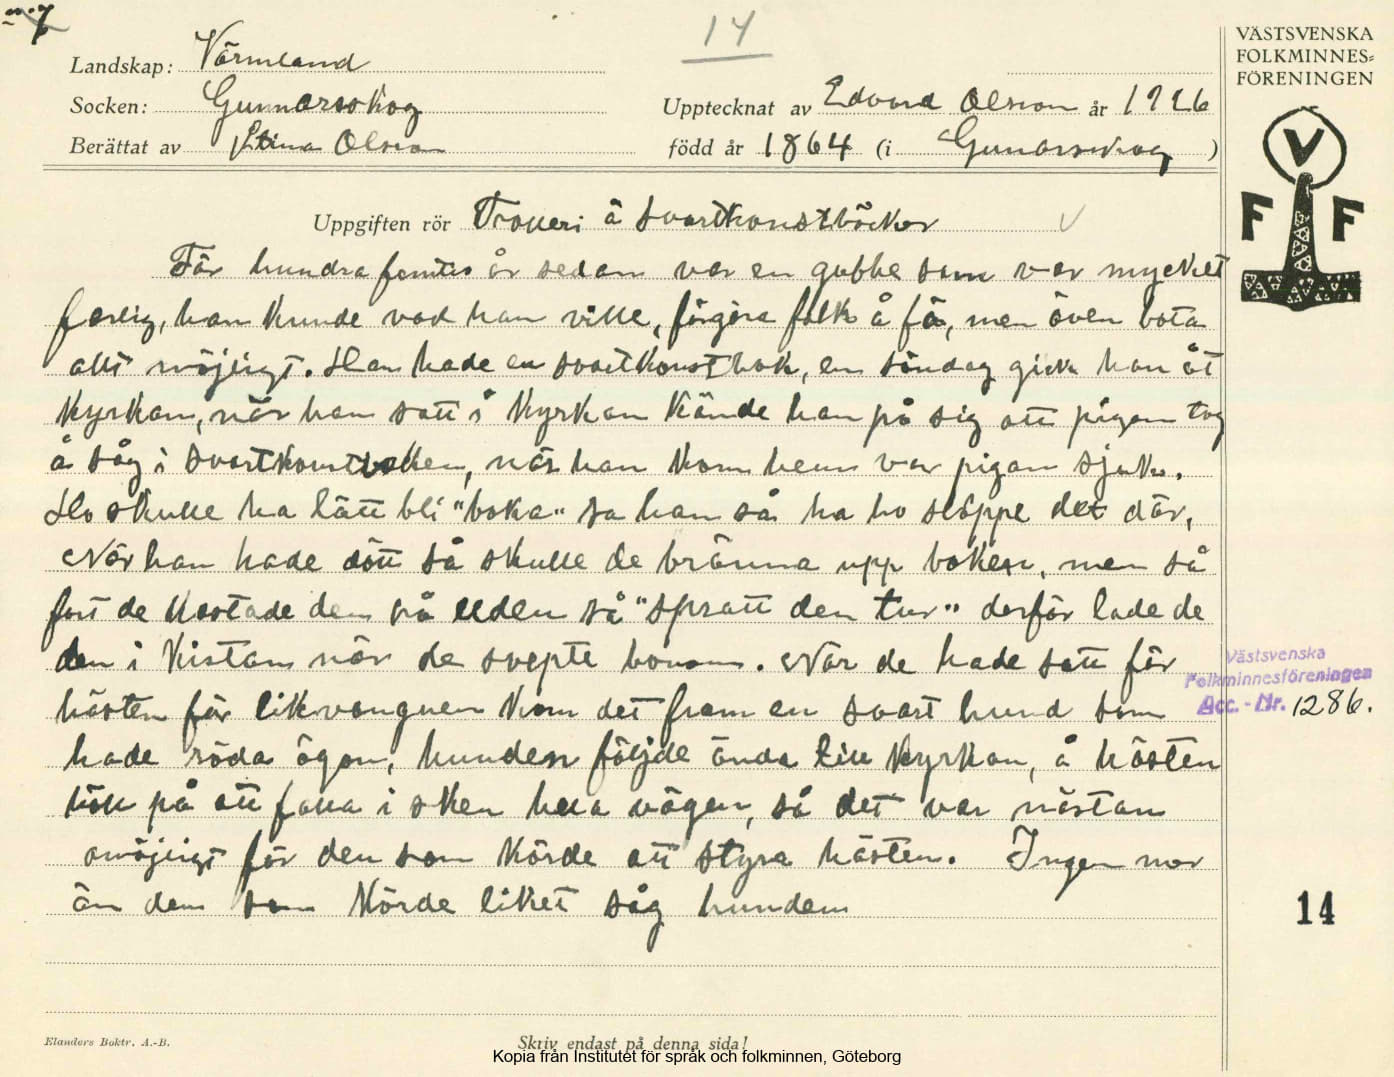 n:7
14
VÄSTSVENSKA
FOLKMINNES=
FÖRENINGEN
V
F F
Landskap: Värmland
Socken: Gunnarsskog
Upptecknat av Edvard Olsson år 1926
Berättat av Stina Olsson
född år 1864 (i Gunnarsskog )
Uppgiften rör Trolleri å svartkonstböcker
För hundrafemtio år sedan var en gubbe som var mycket
farlig, han kunde vad han ville, förgöra folk å fä, men även bota
allt möjligt. Han hade en svartkonstbok, en söndag gick han åt
kyrkan, när han satt i kyrkan kände han på sig att pigan tog
å såg i svartkonstboken, när han kom hem var pigan sjuk.
Ho skulle ha lätt bli "boka" sa han så ha ho sloppe det där,
När han hade dött så skulle de bränna upp boken, men så
fort de kastade den på elden så "spratt den tur" därför lade de
den i kistan när de svepte honom. När de hade satt för
hästen för likvangnen kom det fram en svart hund som
hade röda ögon, hunden följde ända till kyrkan, å hästen
höll på att falla i sken hela vägen, så det var nästan
omöjligt för den som körde att styra hästen. Ingen mer
än den som körde liket såg hunden
Västsvenska
Folkminnesföreningen
Acc. - Nr. 1286.
14
Elanders Boktr. A.-B.
Skriv endast på denna sida!
Kopia från Institutet för språk och folkminnen, Göteborg